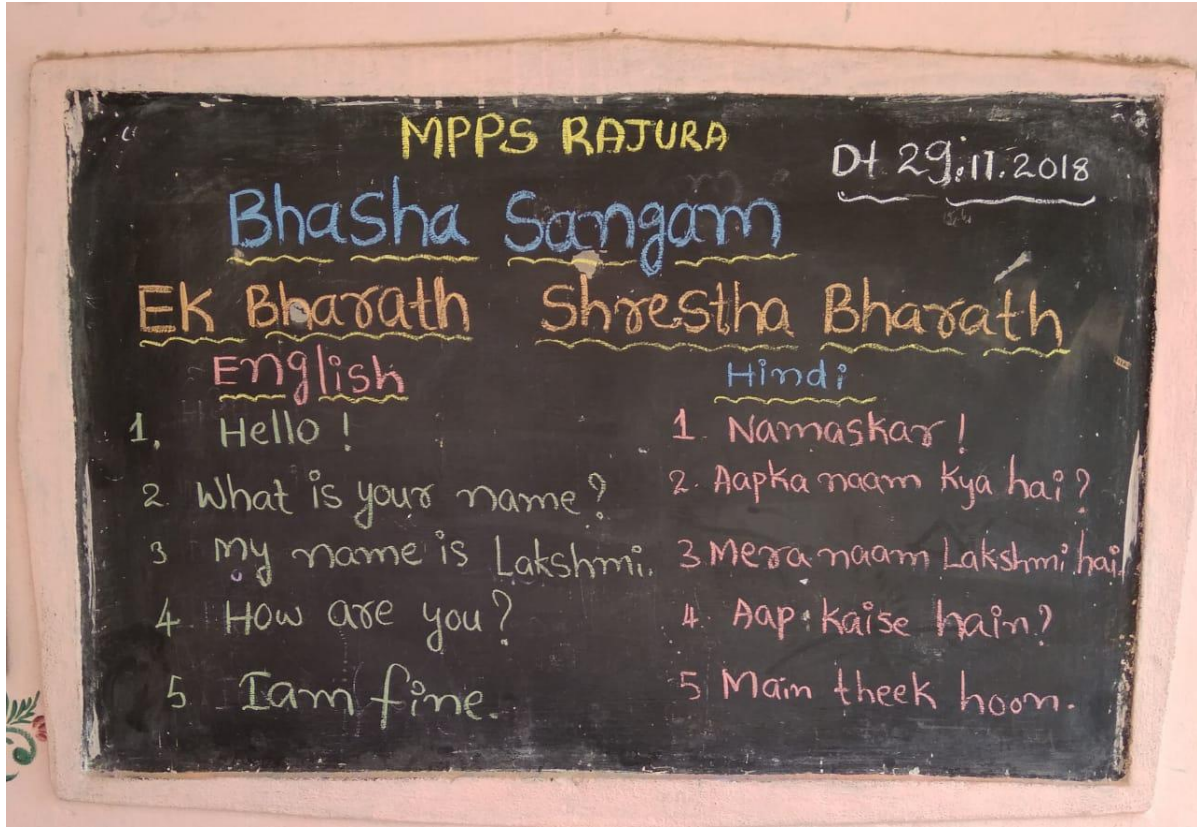 MPPS RAJURA
Dt 29.11.2018
Bhasha Sangam
EK Bharath Shrestha Bharath
English
1, Hello!
2 What is your name?
3 My name is Lakshmi.
4 How are you?
5 Iam fine.
Hindi
1. Namaskar!
2. Aapka naam Kya hai?
3 Mera naam Lakshmi hai.
4. Aap kaise hain?
5 Main theek hoon.